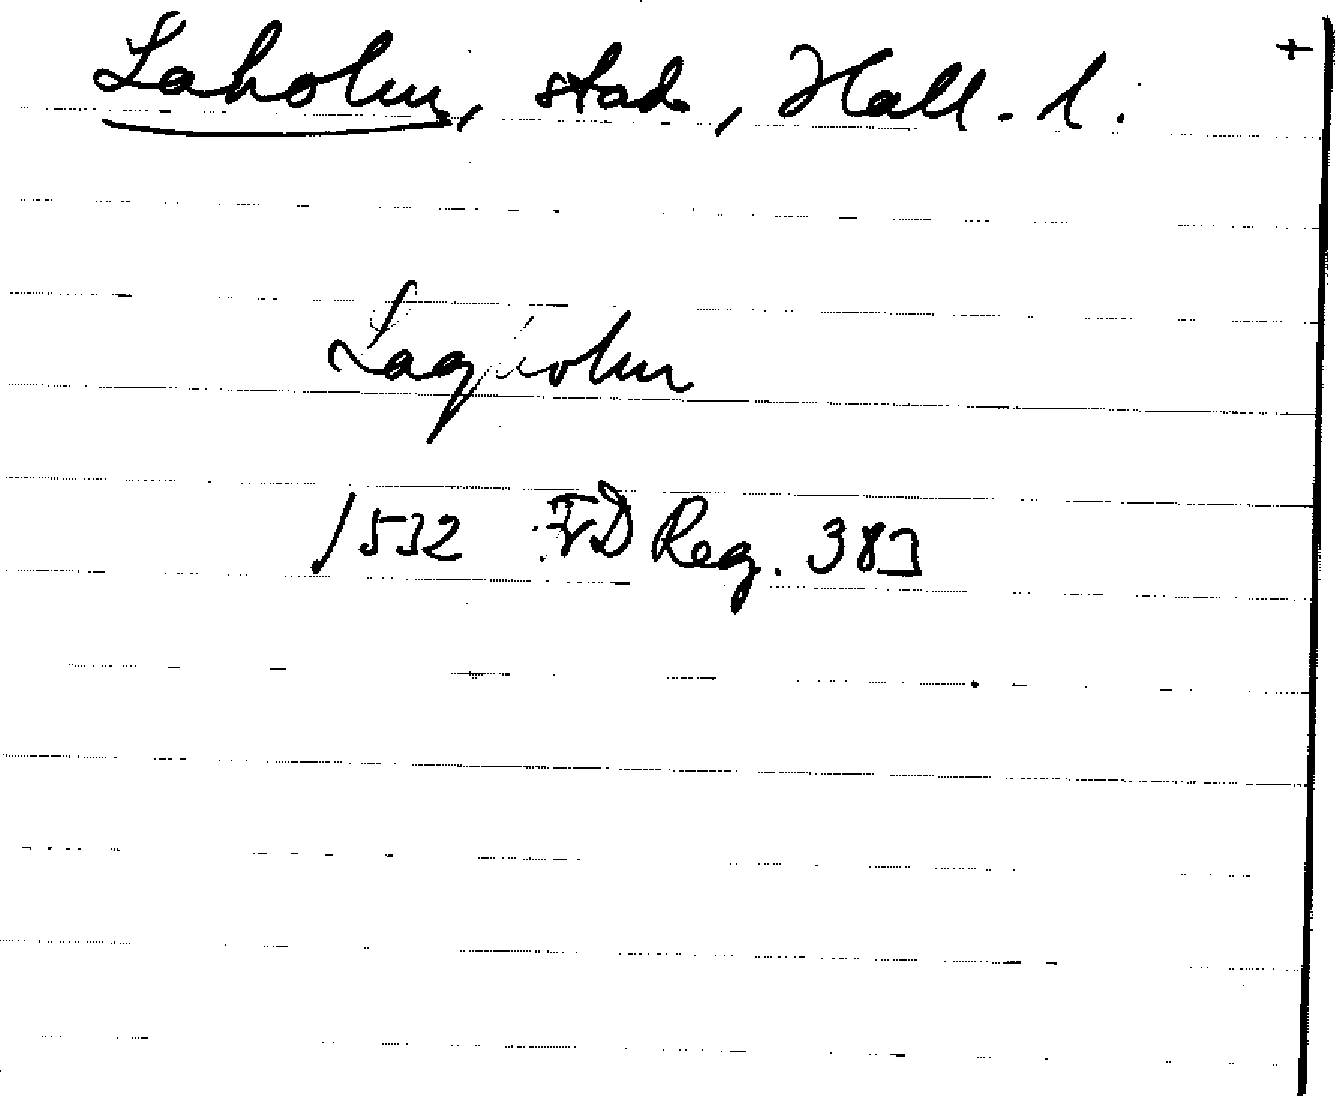 Laholm, stad, Hall. l. +
Lagholm
1532 FD Reg. 383